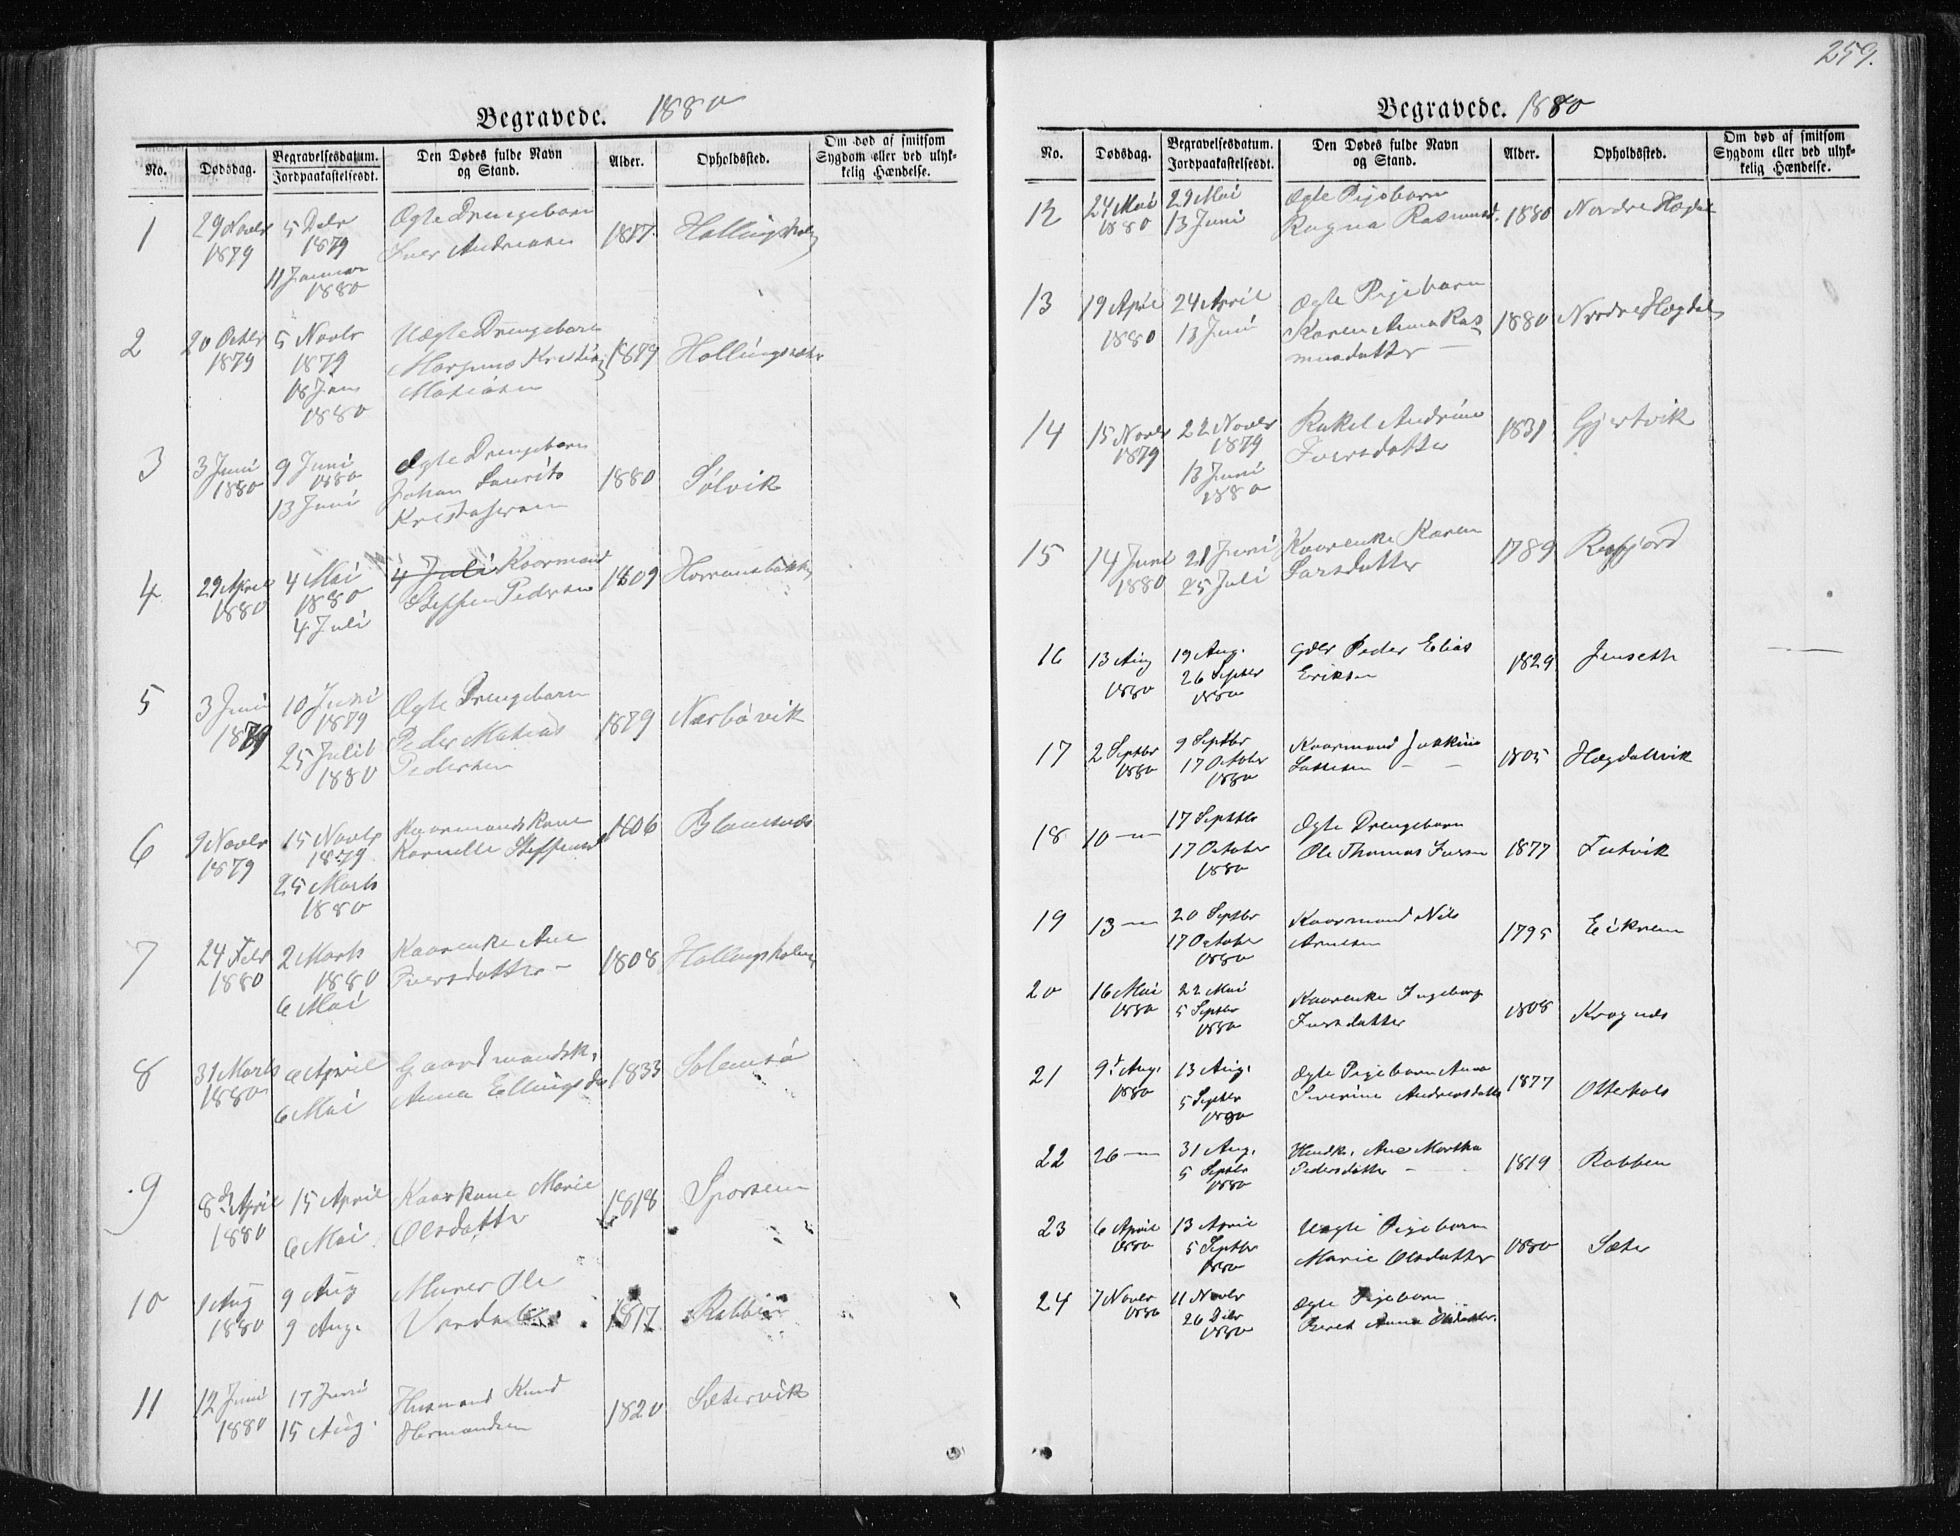 Begravede. 1880
No.
Dødsdag.
Begravelsesdatum.
Jordpaakastelsesdt.
Den Dødes fulde Navn
og Stand.
Alder.
Opholdssted.
Om død af smitsom
Sygdom eller ved ulyk-
kelig Hændelse.
1
29 Novbr
1879
5 Debr
1879
11 Januar
1880
Ægte Drengebarn
Iver Andreasen
1877
Hallingsholm
2
20 Octbr
1879
5 Novbr
1879
18 Jan
1880
Uægte Drengebarn
Kristian
Matiasen
1879
Hollingsæter
3
3 Juni
1880
9 Juni
1880
13 Juni
Ægte Drengebarn
Johan Laurits
Kristofersen
1880
Sølvik
4
29 April
1880
4 Mai
1880
4 Juli
4 Juli Kaarmand
Steffen Pedersen
1809
5
3 Juni
1879
10 Juni
1879
25 Juli
1880
Ægte Drengebarn
Peder Matias
Pedersen
1879
Nærbøvik
6
9 Novbr
1879
15 Novbr
1879
25 Marts
1880
Kaarmands Kone
Steffensd
1806
7
24 Febr
1880
2 Marts
1880
6 Mai
Kaarenke Ane
Iversdatter
1808
Hallingsholm
8
31 Marts
1880
6 April
6 Mai
Gaardmandsk.
Anna Ellingsd
1833
Solemsø
9
8de April
1880
15 April
6 Mai
Kaarkone Marie
Olsdatter
1818
Sporsem
10
1 Aug
1880
9 Aug
9 Aug.
Murer Ole
1817
Rabben
11
12 Juni
1880
17 Juni
15 Aug.
Husmand Knud
Hermandsen
1820
Sætervik
259.
Begravede. 1880
No.
Dødsdag.
Begravelsesdatum.
Jordpaakastelsesdt.
Den Dødes fulde Navn
og Stand.
Alder.
Opholdssted.
Om død af smitsom
Sygdom eller ved ulyk-
kelig Hændelse.
12
24 Mai
1880
29 Mai
13 Juni
Ægte Pigebarn
Ragna Rasmusd.
1880
Nordre Hægdal
13
19 April
1880
24 April
13 Juni
Ægte Pigebarn
Karen Anna Ras
musdatter
1880
Nordre Hægdal
14
15 Novbr
1879
22 Novbr
1879
13 Juni
1880
Rakel Andrine
Iversdatter
1831
Gjertvik
15
14 Juni
1880
21 Juni
25 Juli
Kaarenke Karen
Larsdatter
1789
16
13 Aug
1880
19 Aug.
26 Septbr
1880
Gdbr Peder Elias
Eriksen
1829
Jenseth
17
2 Septbr
1880
9 Septbr
17 October
1880
Kaarmand Jokkim
Lassesen
1805
Hægdalsvik
18
10 — " —
17 Septbr
17 October
1880
Ægte Drengebarn
Ole Thomas Iversen
1877
19
13 — " —
20 Septbr
17 October
1880
Kaarmand Nils
Arnesen
1795
Eikrem
20
16 Mai
1880
22 Mai
5 Septbr
1880
Kaarenke Ingeborg
Iversdatter
1808
Kragnæs
21
9de Aug.
1880
13 Aug.
5 Septbr
1880
Ægte Pigebarn Anna
Severine Andreasdatter
1877
Otterhals
22
26 — " —
31 Aug.
5 Septbr
1880
Ane Martha
Pedersdatter
1819
Rabben
23
6 April
1880
13 April
5 Septbr
1880
Uægte Pigebarn
Marie Olsdatter
1880
Sæter
24
7 Novbr
1880
11 Novbr
26 Debr
1880
Ægte Pigebarn
Beret Anna Olsdatter.